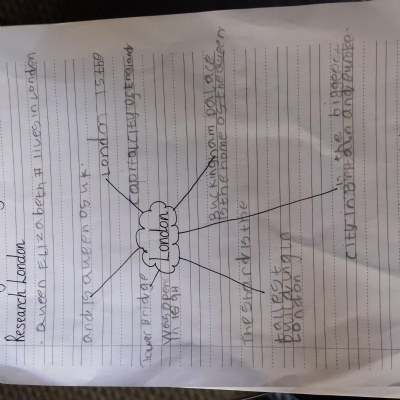 Research London
. Queen ELizabeth II lives in London
and is a queen of uk.
London is the
capital city of England
Tower Bridge
was open
in 1894
London
Buckingham palace
is the home of the queen
The shard is the
tallest
building in
London
is the biggest
city in Britain and europe.